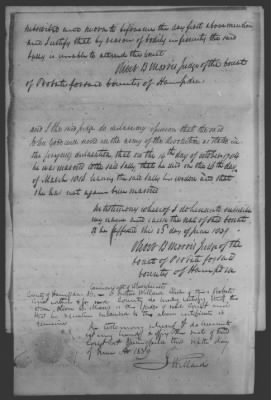 subscribed and sworn to before me the day first above mention
and I certify that by reason of bodily infirmity the said
Sally is unable to attend this court
Oliver B Morris Judge of the Court
of Probate for said County of Hampden
and I the said judge do declare my opinion that the said
served in the army of the Revolution as stated in
the foregoing declaration that on the 14th day of October 1784
he was married to the said Sally, that he died on the day
of March 1818 leaving the said Sally his widow and that
she has not again been married
In testimony whereof I do hereunto subscribe
my name and affix the seal of this court
this 15th day of June 1839
Oliver B Morris Judge of the
Court of Probate for said
County of Hampden
Commonwealth of Massachusetts
County of Hampden ss. I Justice Willard of the Probate
Court within & for said County do hereby certify that
Oliver B Morris is the Judge of said Court and
that his signature to the above certificate is
genuine
In testimony whereof I do hereunto
set my hand & affix the seal of the
Court at Springfield this day
of June AD 1839
J Willard